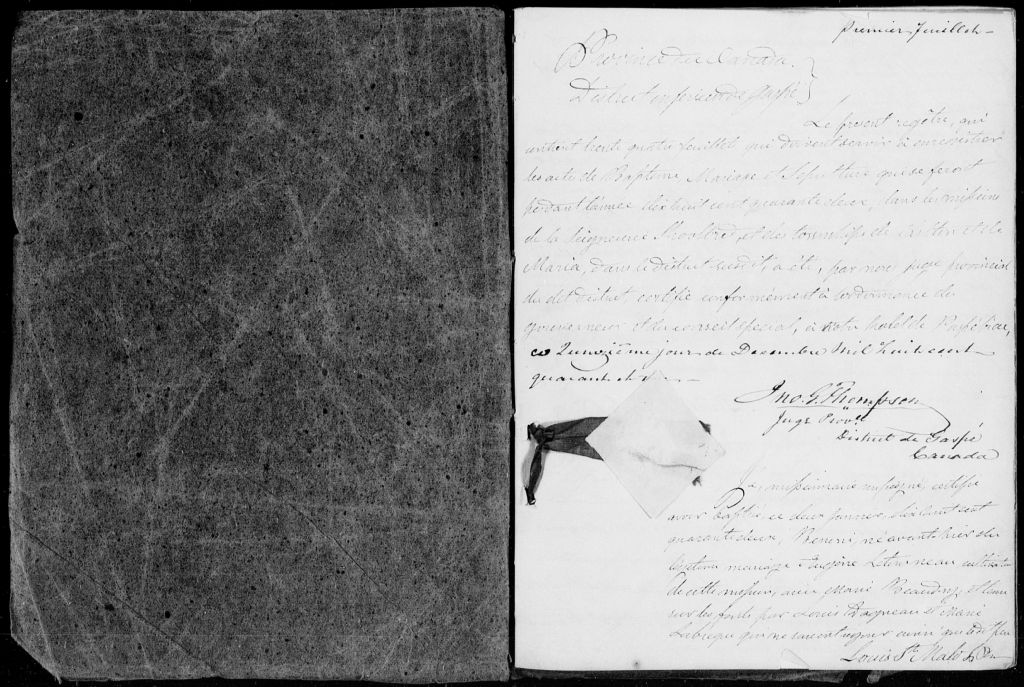 Premier feuillet
Province du Canada.
District inférieur de Gaspé
Le present regître, qui
contient trente quatre feuillets qui doivent servir à enregistrer
les acte de Baptême, Mariage et Sepulture qui se feront
pendant l'année dix huit cent quarante deux, dans les missions
de la Seigneurie Shoolbred, et des townships de et de
Maria, dans le District susdit, a été, par nous juge provincial
du dit District, certifié conformément à l'ordonnance du
gouverneur et du conseil special, à notre hotel de
ce Quinzième jour de Decembre Mil huit cent
quarante et
Jno. G. Thompson
Juge Provl.
District de Gaspé
Canada
missionnaire soussigné, certifie
avoir baptisé ce deux janvier, dix huit cent
quarante deux, né avant hier du
légitime mariage
de cette mission, avec Marie Beaudry, et tenu
sur les fonts par Louis et Marie
qui ne savent signer ainsi que le dit
Louis St. Malo